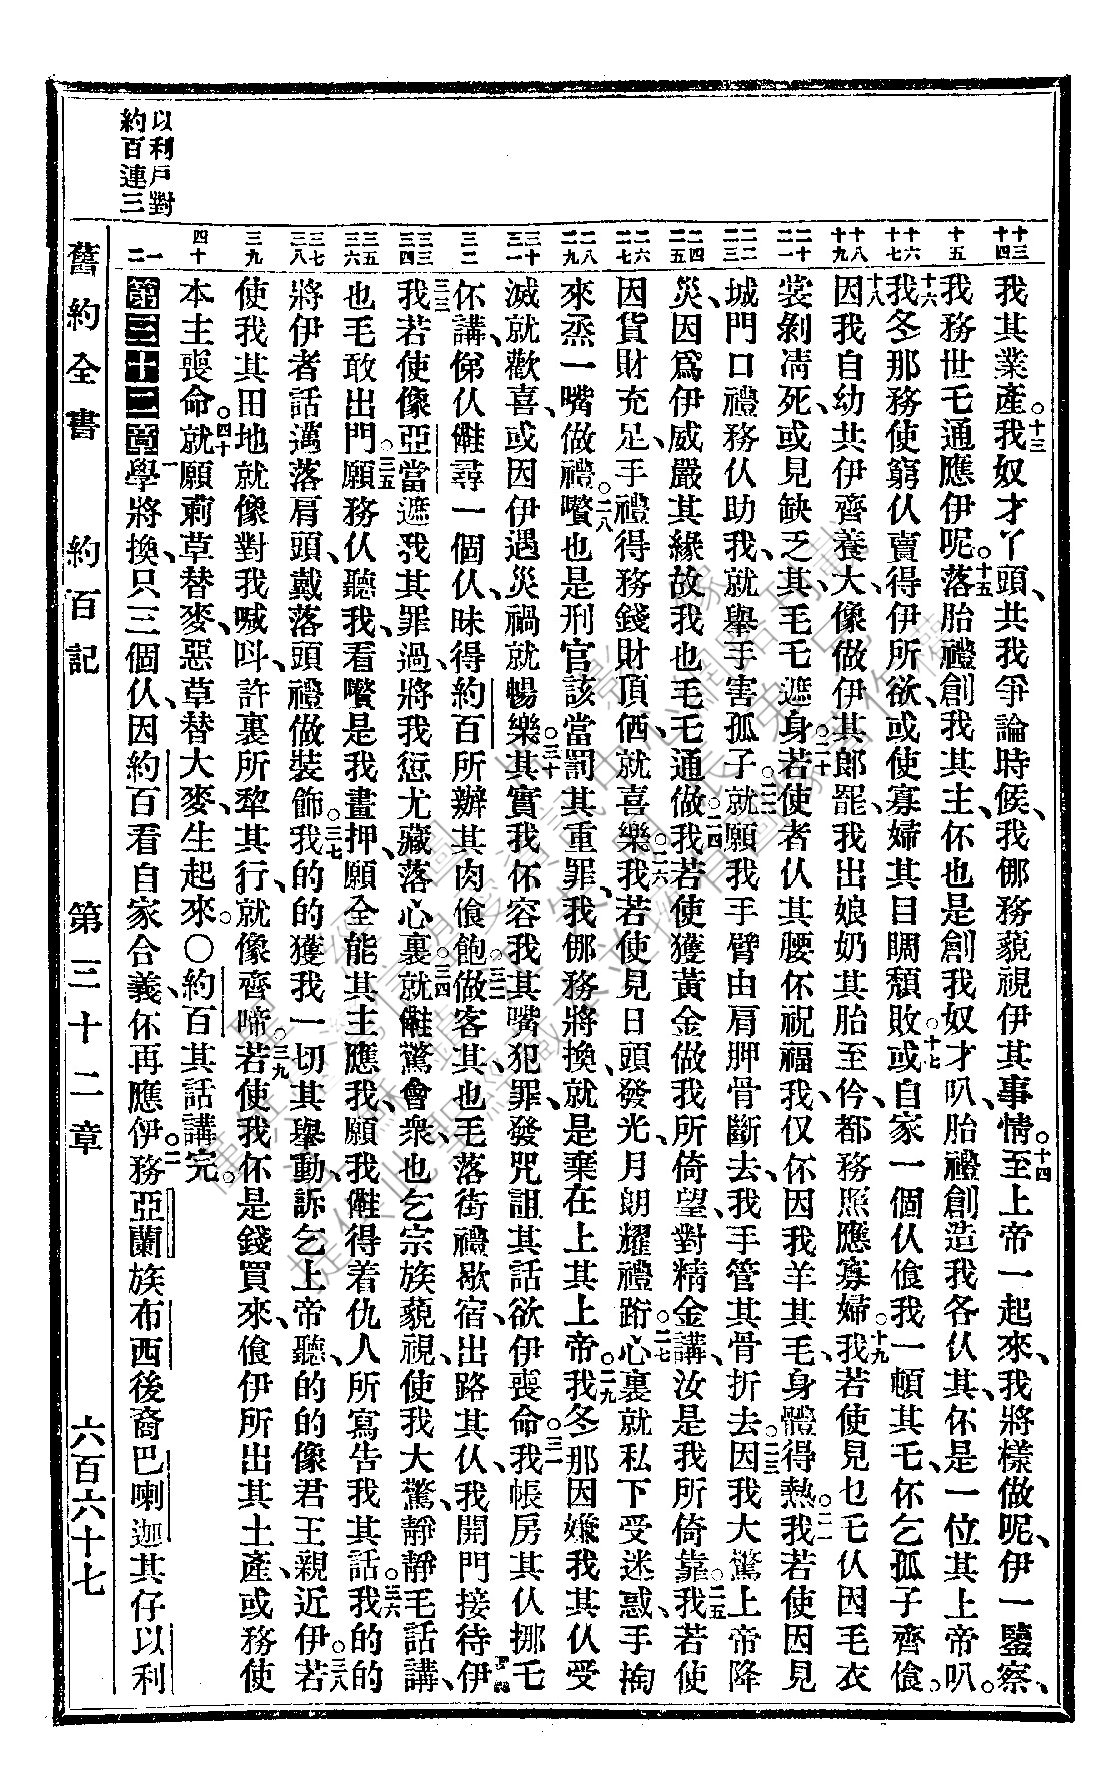 以利戶對
約百連三
十三 十四
十五
十六 十七
十八 十九
二十 二一
二二 二三
二四 二五
二六 二七
二八 二九
三十 三一
三二
三三 三四
三五 三六
三七 三八
三九
四十
一 二
我其業產。十三我奴才丫頭、共我爭論時候、我㑚務藐視伊其事情。十四至上帝一起來、我將樣做呢、伊一鑒察、
我務世乇通應伊呢。十五落胎禮創我其主、伓也是創我奴才叭、胎禮創造我各仈其、伓是一位其上帝叭。
十六我冬那務使窮仈賣得伊所欲、或使寡婦其目瞤頹敗。十七或自家一個仈飡我一頓其乇、伓乞孤子齊飡。
十八因我自幼共伊齊養大、像做伊其郎罷、我出娘奶其胎至伱、都務照應寡婦。十九我若使見乜乇仈因毛衣
裳剝凊死、或見缺乏其毛乇遮身。二十若使者仈其腰伓祝福我、仅伓因我羊其毛、身體得熱。二一我若使因見
城門口禮務仈助我、就舉手害孤子。二二就願我手臂由肩胛骨斷去、我手管其骨折去。二三因我大驚上帝降
災、因爲伊威嚴其緣故、我也毛乇通做。二四我若使獲黃金做我所倚望、對精金講、汝是我所倚靠。二五我若使
因貨財充足、手禮得務錢財頂㑚、就喜樂。二六我若使見日頭發光、月朗耀禮䟰、二七心裏就私下受迷惑、手掏
來烝一嘴做禮。二八嚽也是刑官該當罰其重罪、我㑚務將換、就是棄在上其上帝。二九我冬那因嫌我其仈受
滅、就歡喜、或因伊遇災禍、就暢樂。三十其實我伓容我其嘴犯罪、發咒詛其話、欲伊喪命。三一我帳房其仈、挪乇
伓講、俤仈𣍐尋一個仈、昧得約百所辦其肉飡飽。三二做客其也毛落街禮歇宿、出路其仈、我開門接待伊
三三我若使像亞當遮我其罪過、將我愆尤藏落心裏。三四就𣍐驚會衆、也乞宗族藐視、使我大驚、靜靜毛話講、
也毛敢出門。三五願務仈聽我、看嚽是我畫押、願全能其主應我、願我𣍐得着仇人所寫告我其話。三六我的的
將伊者話邁落肩頭、戴落頭禮做裝飾。三七我的的獲我一切其舉動、訴乞上帝聽、的的像君王親近伊。三八若
使我其田地就像對我喊叫、許裏所犂其行、就像齊啼。三九若使我伓是錢買來、飡伊所出其土產、或務使
本主喪命。四十就願莿草替麥、惡草替大麥、生起來。〇約百其話講完。
第三十二章一學將換、只三個仈、因約百看自家合義、伓再應伊。二務亞蘭族布西後裔巴喇迦其仔以利
舊約全書　約百記　第三十二章　六百六十七